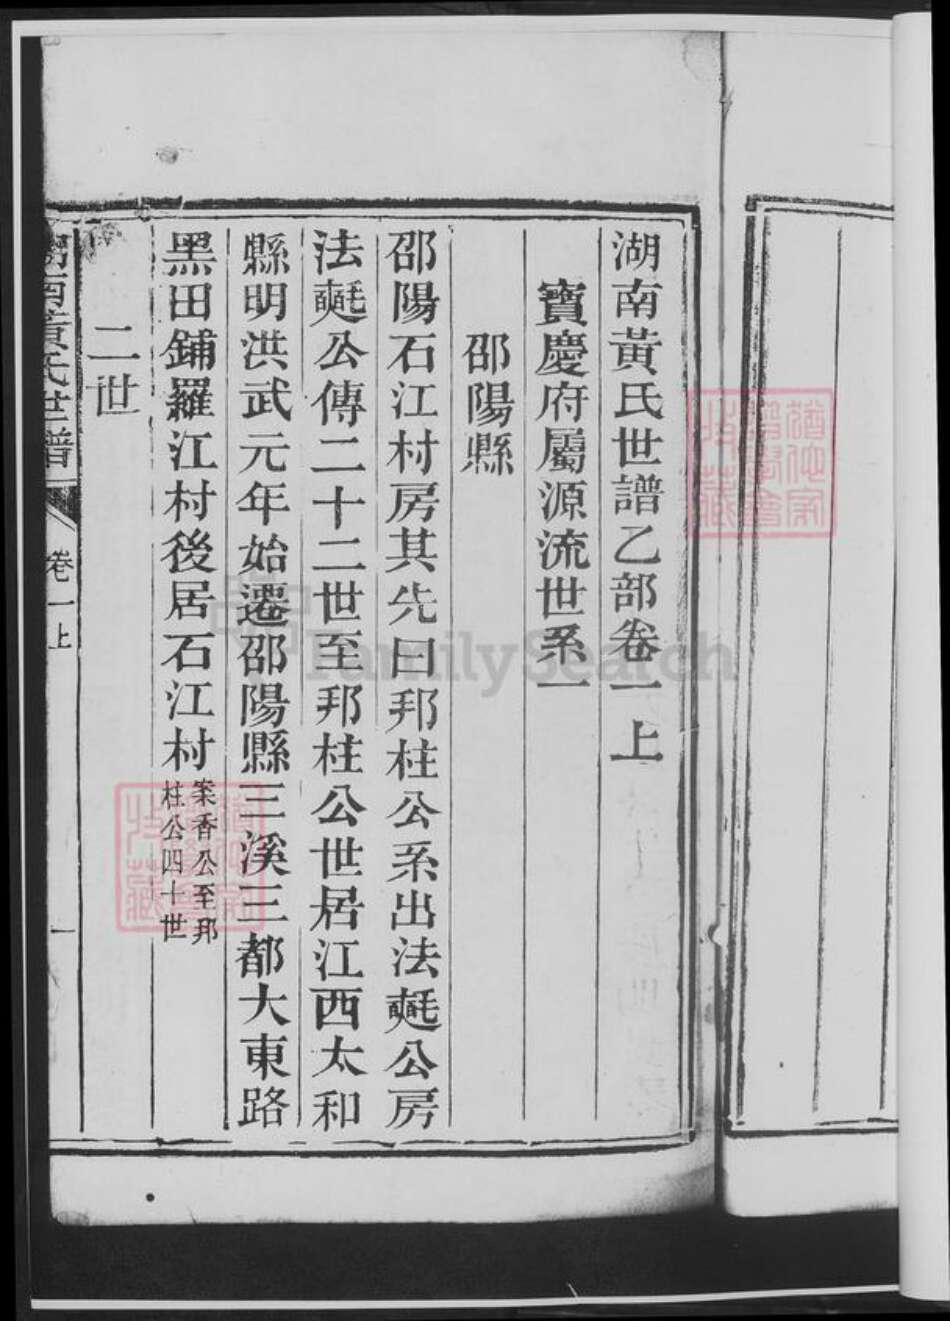 湖南黃氏世譜乙部卷一上
寶慶府屬源流世系一
邵陽縣
邵陽石江村房其先曰邦柱公系出法𧹞公房
法𧹞公傳二十二世至邦柱公世居江西太和
縣明洪武元年始遷邵陽縣三溪三都大東路
黑田鋪羅江村後居石江村
案香公至邦
柱公四十世
二世
湖南黃氏世譜
卷一上
一
FamilySearch